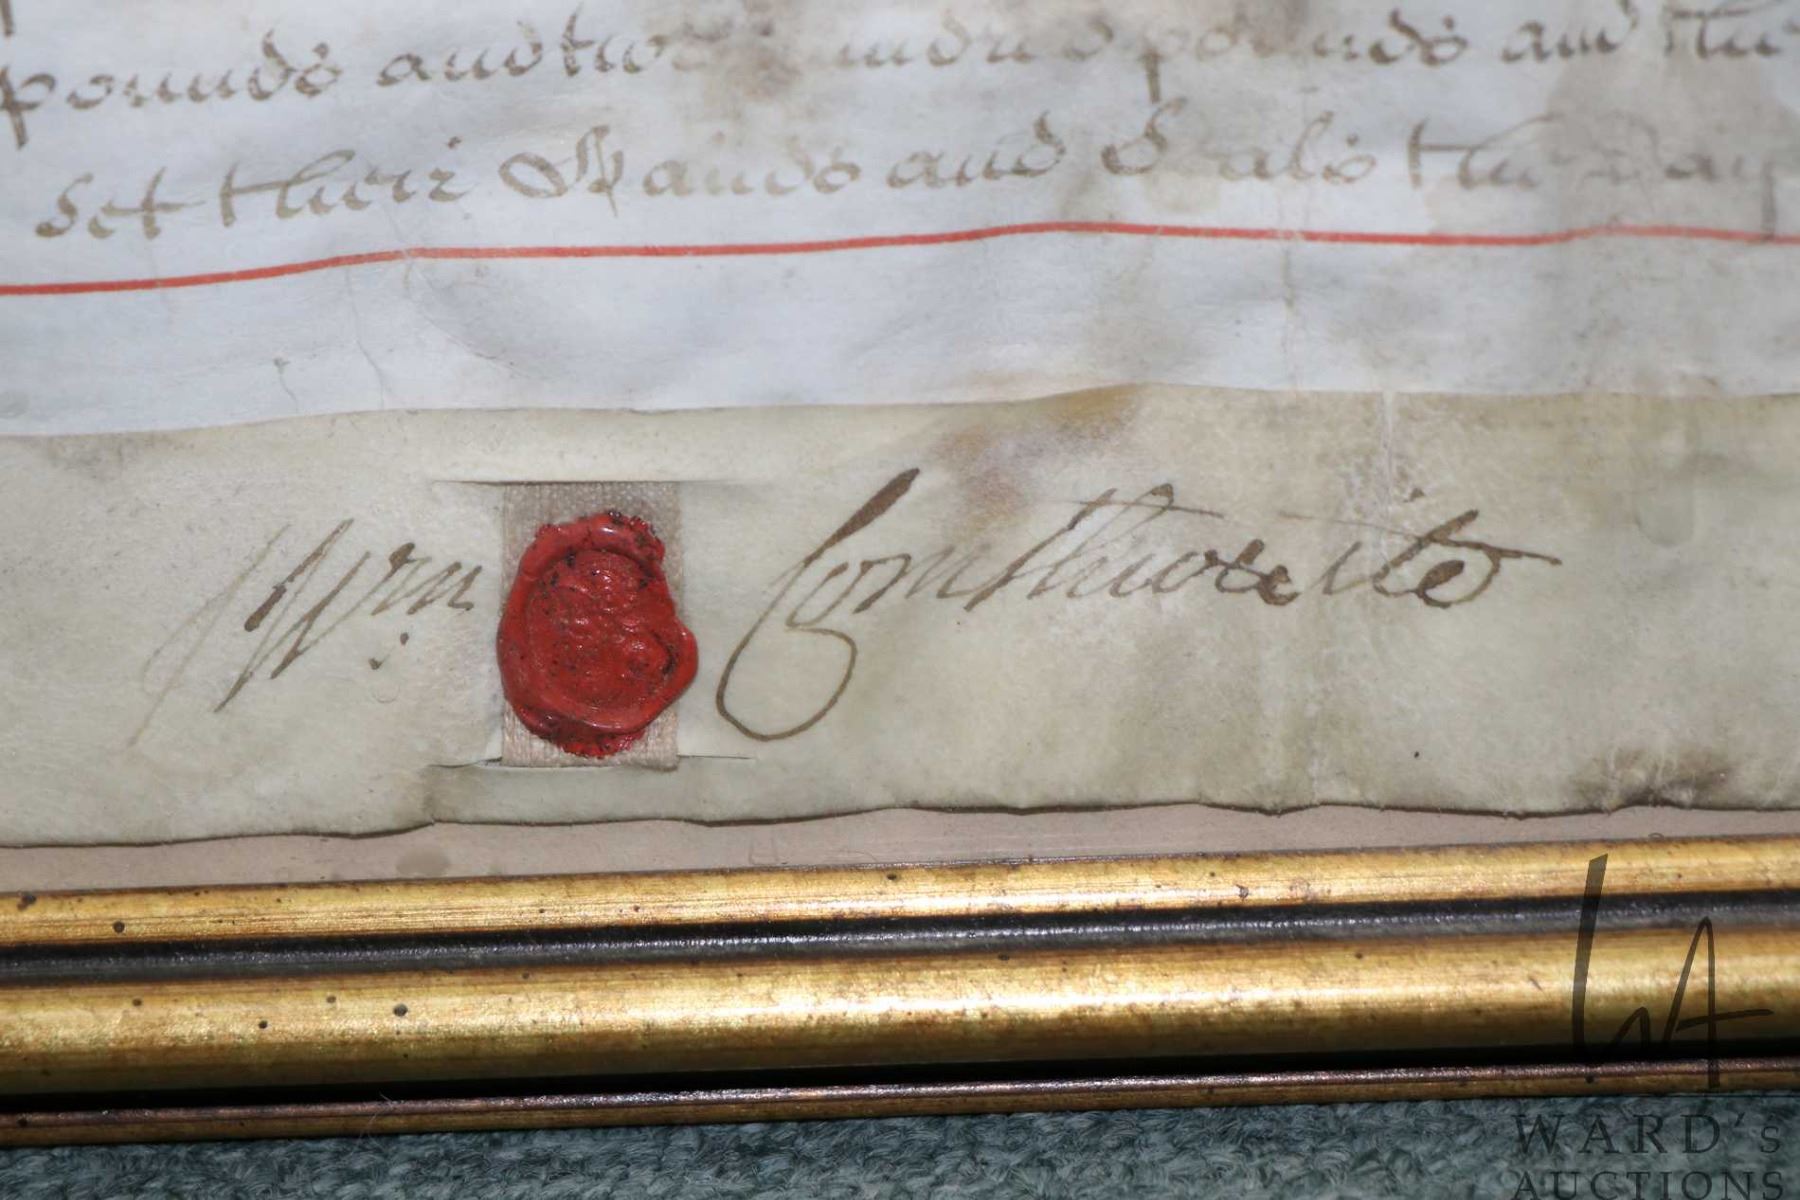 pounds and two hundred pounds and the
Set their Hands and Seals the Day
Wm: Comthwaite
WARD's
AUCTIONS